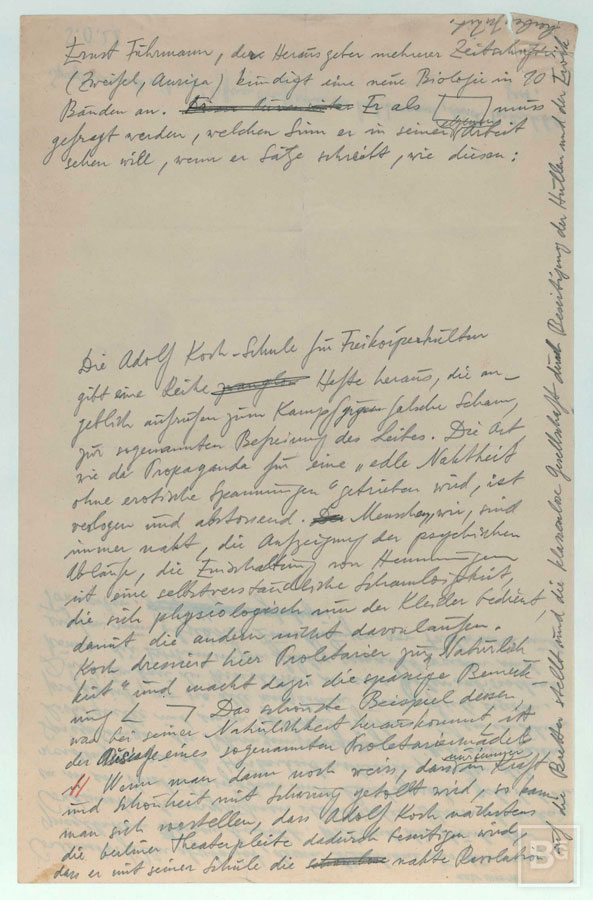 Ernst Fuhrmann, der Herausgeber mehrerer Zeitschriften
(Zweifel, Auriga) kündigt eine neue Biologie in 10
Bänden an. Er als [ ] muss
gefragt werden, welchen Sinn er in seiner Arbeit
sehen will, wenn er Sätze schreibt, wie diesen:
Die Adolf Koch-Schule für Freikörperkultur
gibt eine Reihe Hefte heraus, die an-
geblich aufrufen zum Kampf gegen falsche Scham,
zur sogenannten Befreiung des Leibes. Die Art
wie da Propaganda für eine „edle Nacktheit
ohne erotische Spannungen" getrieben wird, ist
verlogen und abstossend. Menschen, wir, sind
immer nakt, die Aufzeigung der psychischen
Abläufe, die Einschaltung von Hemmungen
ist eine selbstverständliche Schamlosigkeit,
die sich physiologisch nur der Kleider bedient,
damit die andern nicht davonlaufen.
Koch dressiert hier Proletarier zur „Natürlich
keit" und macht dazu die spassige Bemerk-
ung [ ] Das schönste Beispiel dessen,
was bei seiner Natürlichkeit herauskommt, ist
der eines sogenannten Proletariermädels
Wenn man dann noch weiss, dass an Kraft
und Schönheit mit Schwung geturnt wird, so kann
man sich vorstellen, dass Adolf Koch nächstens
die berliner Theaterpleite dadurch beseitigen wird,
dass er mit seiner Schule die nakte Revolution
auf die Bretter stellt und die klassenlose Gesellschaft durch Beseitigung der Hüllen und der Erotik